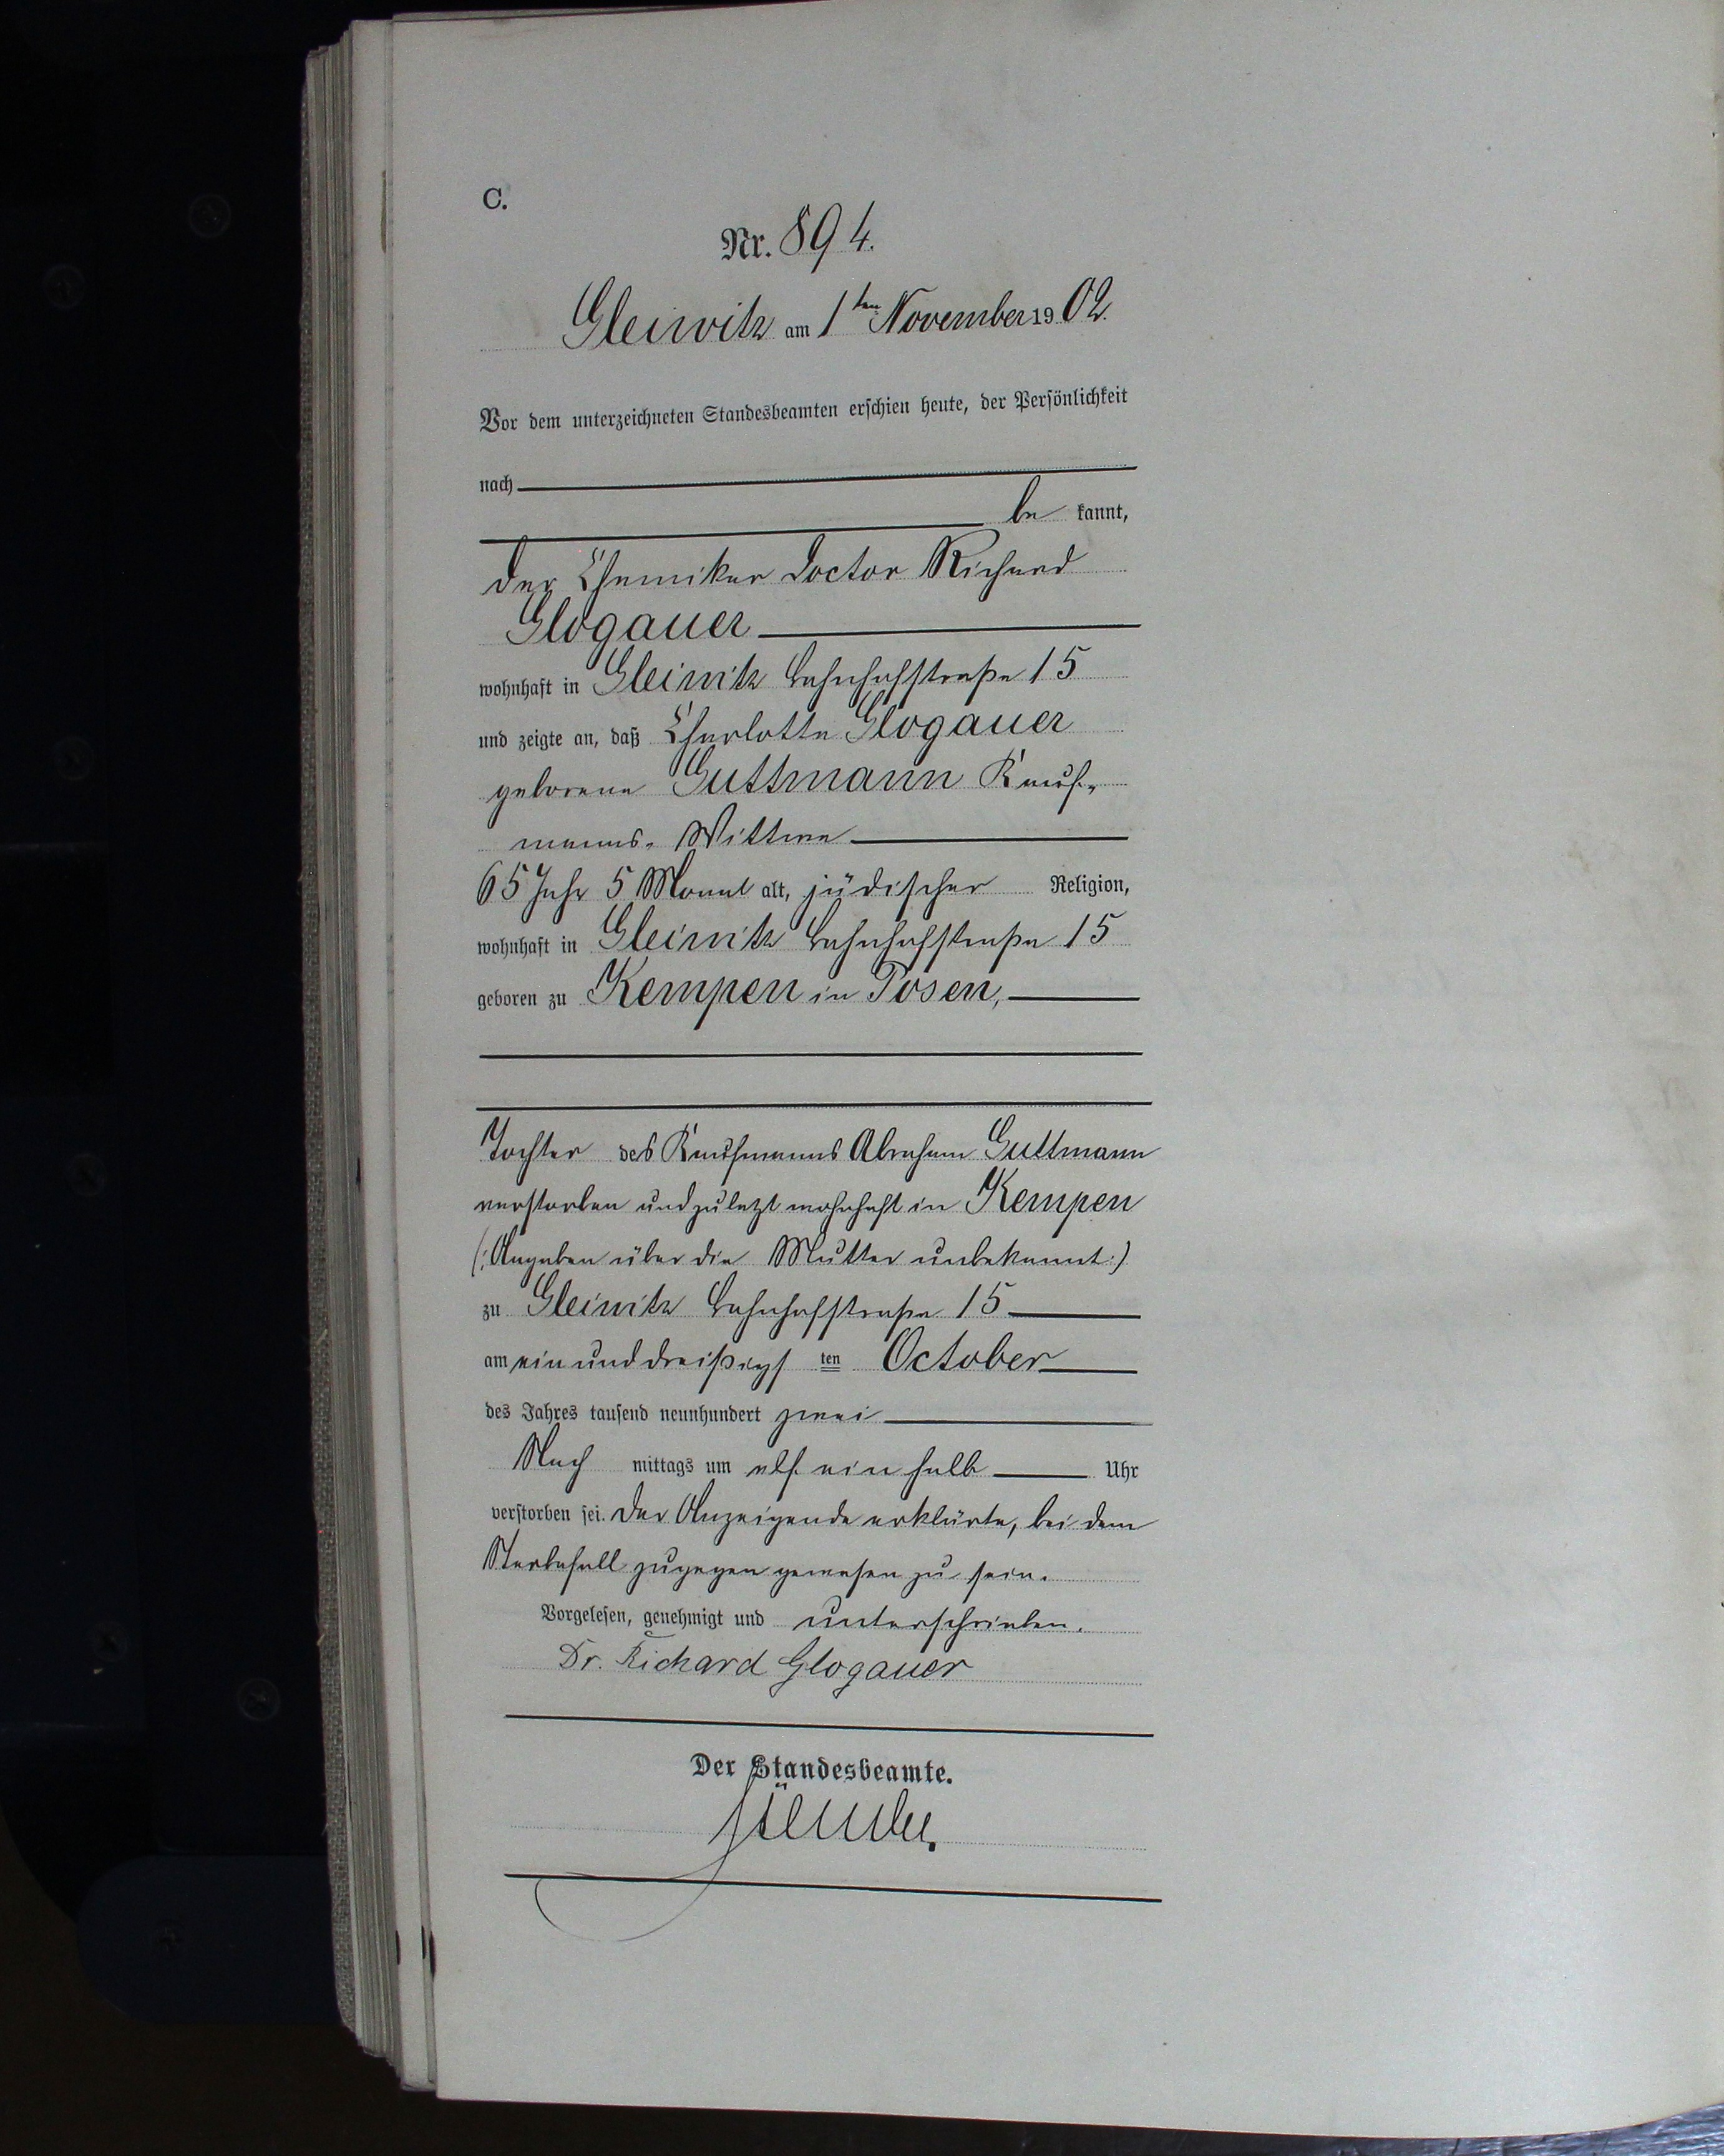 C.
Nr. 894.
Gleiwitz am 1ten November 1902.
Vor dem unterzeichneten Standesbeamten erschien heute, der Persönlichkeit
nach
be kannt,
der Chemiker Doctor Richard
Glogauer
wohnhaft in Gleiwitz Bahnhofstraße 15
und zeigte an, daß Charlotte Glogauer
geborene Guttmann Kauf-
manns-Wittwe
65 Jahr 5 Monat alt, jüdischer Religion,
wohnhaft in Gleiwitz Bahnhofstraße 15
geboren zu Kempen in Posen,
Tochter des Kaufmanns Abraham Guttmann
verstorben und zuletzt wohnhaft in Kempen
(: Angaben über die Mutter unbekannt :)
zu Gleiwitz Bahnhofstraße 15
am einunddreißigs ten October
des Jahres tausend neunhundert zwei
Nach mittags um elf ein halb Uhr
verstorben sei. Der Anzeigende erklärte, bei dem
Sterbefall zugegen gewesen zu sein.
Vorgelesen, genehmigt und unterschrieben.
Dr. Richard Glogauer
Der Standesbeamte.